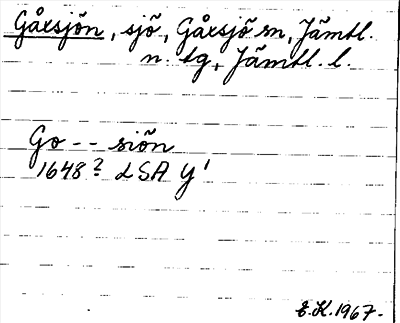 Gåxsjön, sjö, Gåxsjö sn, Jämtl.
n. tg, Jämtl. l.
Go - - siön
1648? LSA Y¹
E.K. 1967.